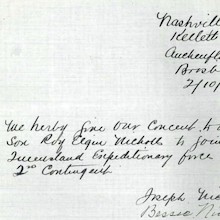 Nashville
Kellett
Auchenfl
Brisb
2/10/
We herby give our Concent to o
Son Roy Elgin Nicholls to Join
Queensland Expeditionary force
2nd Contingent
Joseph
Bessie